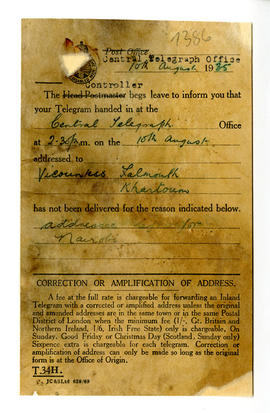 1386
Post Office
Central Telegraph Office
10th August 1935
Controller
The Head Postmaster begs leave to inform you that
your Telegram handed in at the
Central Telegraph Office
at 2-30 p.m. on the 10th August
addressed to
Falmouth
Khartoum
has not been delivered for the reason indicated below.
addressee left for
Nairobi
CORRECTION OR AMPLIFICATION OF ADDRESS.
A fee at the full rate is chargeable for forwarding an Inland
Telegram with a corrected or amplified address unless the original
and amended addresses are in the same town or in the same Postal
District of London when the minimum fee (1/-, Gt. Britain and
Northern Ireland, 1/6, Irish Free State) only is chargeable. On
Sunday, Good Friday or Christmas Day (Scotland, Sunday only)
Sixpence extra is chargeable for each telegram. Correction or
amplification of address can only be made so long as the original
form is at the Office of Origin.
T 34H.